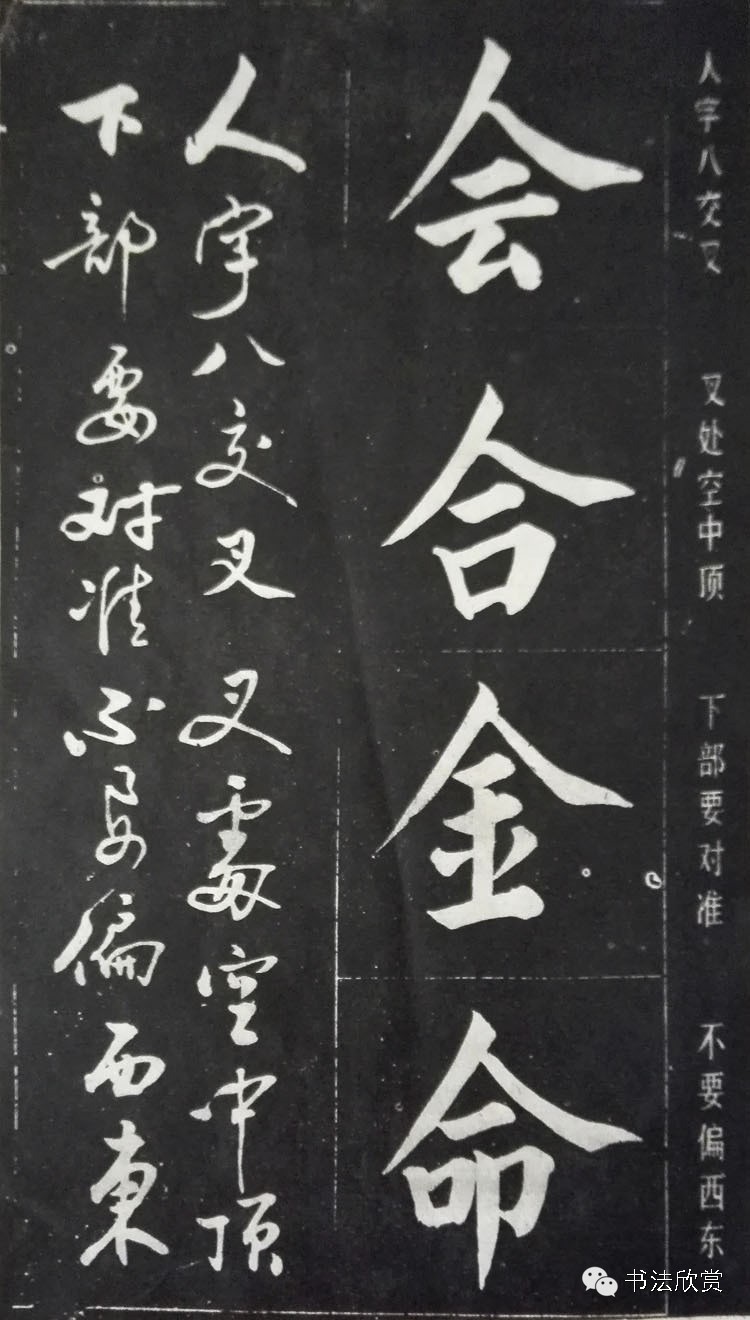 人字八交叉 叉处空中顶 下部要对准 不要偏西东
会合金命
人字八交叉叉處空中顶
下部要对准不要偏西東
书法欣赏